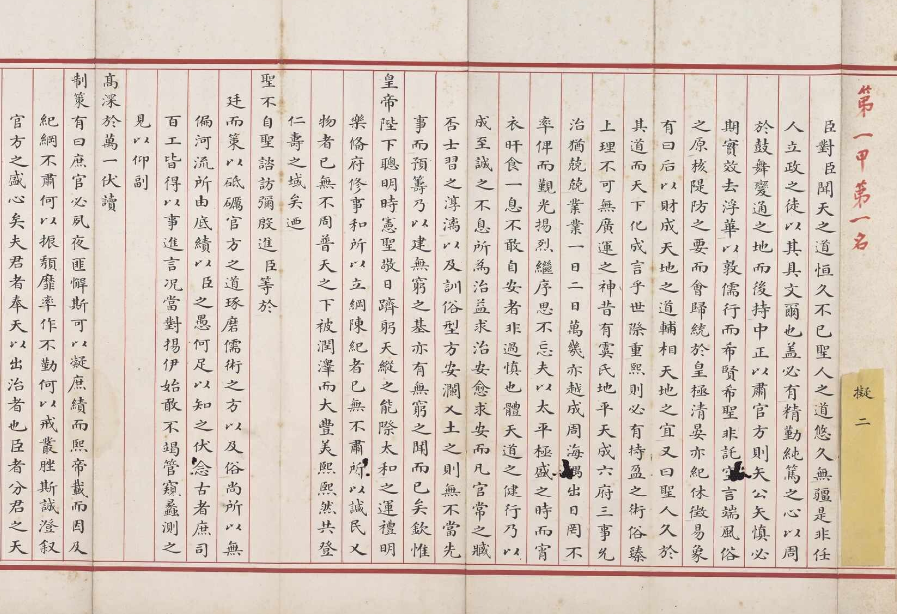 第一甲第一名
擬二
臣對臣聞天之道恒久不已聖人之道悠久無疆是非任
人立政之徒以其具文爾也蓋必有精勤純篤之心以周
於鼓舞變通之地而後持中正以肅官方則矢公矢慎必
期實效去浮華以敦儒行而希賢希聖非託空言端風俗
之原核隄防之要而會歸統於皇極清晏亦紀休徵易象
有曰后以財成天地之道輔相天地之宜又曰聖人久於
其道而天下化成言乎世際重熙則必有持盈之術俗臻
上理不可無廣運之神昔有虞氏地平天成六府三事允
治猶兢兢業業一日二日萬幾亦越成周海隅出日罔不
率俾而覲光揚烈繼序思不忘夫以太平極盛之時而宵
衣旰食一息不敢自安者非過慎也體天道之健行乃以
成至誠之不息所為治益求治安愈求安而凡官常之臧
否士習之淳漓以及訓俗型方安瀾乂土之則無不當先
事而預籌乃以建無窮之基亦有無窮之聞而已矣欽惟
皇帝陛下聰明時憲聖敬日躋躬天縱之能際太和之運禮明
樂備府修事和所以立綱陳紀者已無不肅所以諴民乂
物者已無不周普天之下被潤澤而大豐美熙熙然共登
仁壽之域矣迺
聖不自聖諮訪彌殷進臣等於
廷而策以砥礪官方之道琢磨儒術之方以及俗尚所以無
偏河流所由底績以臣之愚何足以知之伏念古者庶司
百工皆得以事進言況當對揚伊始敢不竭管窺蠡測之
見以仰副
高深於萬一伏讀
制策有曰庶官必夙夜匪懈斯可以凝庶績而熙帝載而因及
紀綱不肅何以振頹靡率作不勤何以戒叢脞斯誠澄敘
官方之盛心矣夫君者奉天以出治者也臣者分君之天